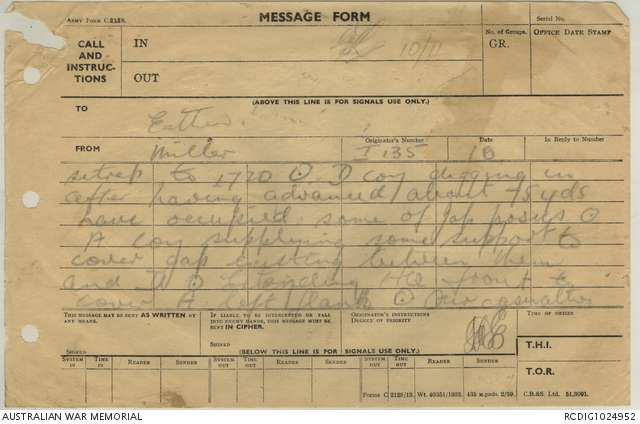 ARMY FORM C2128.
MESSAGE FORM
SERIAL NO.
CALL AND INSTRUCTIONS
IN
OUT
10/11
NO. OF GROUPS.
GR.
OFFICE DATE STAMP
(ABOVE THIS LINE IS FOR SIGNALS USE ONLY.)
TO
FROM
Miller
Originator's Number
I 135
Date
10
In Reply to Number
sitrep to 1720 O D coy digging in
after having advanced about 75 yds
have occupied some of Jap posns O
A coy supplying some support to
cover gap existing between them
and
cover A left flank O Nil casualties
THIS MESSAGE MAY BE SENT AS WRITTEN BY ANY MEANS.
SIGNED
IF LIABLE TO BE INTERCEPTED OR FALL INTO ENEMY HANDS, THIS MESSAGE MUST BE SENT IN CIPHER.
SIGNED
ORIGINATOR'S INSTRUCTIONS
DEGREE OF PRIORITY
TIME OF ORIGIN
(BELOW THIS LINE IS FOR SIGNALS USE ONLY.)
SYSTEM IN
TIME IN
READER
SENDER
SYSTEM OUT
TIME OUT
READER
SENDER
SYSTEM OUT
TIME OUT
READER
SENDER
T.H.I.
T.O.R.
AUSTRALIAN WAR MEMORIAL
RCDIG1024952